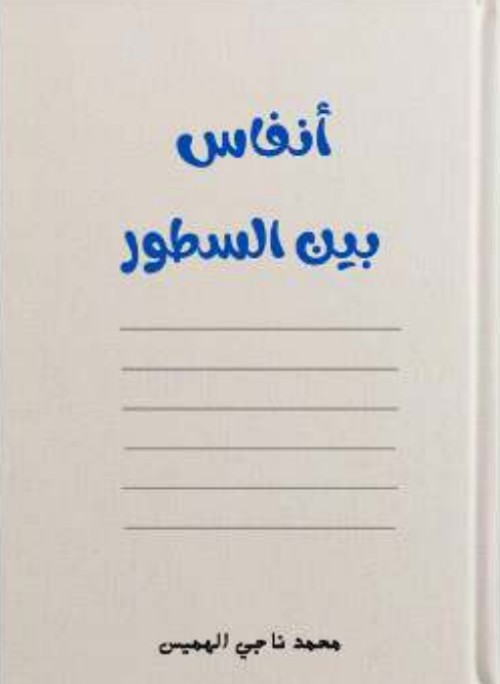 أنفاس
بين السطور
محمد ناجي الهميس